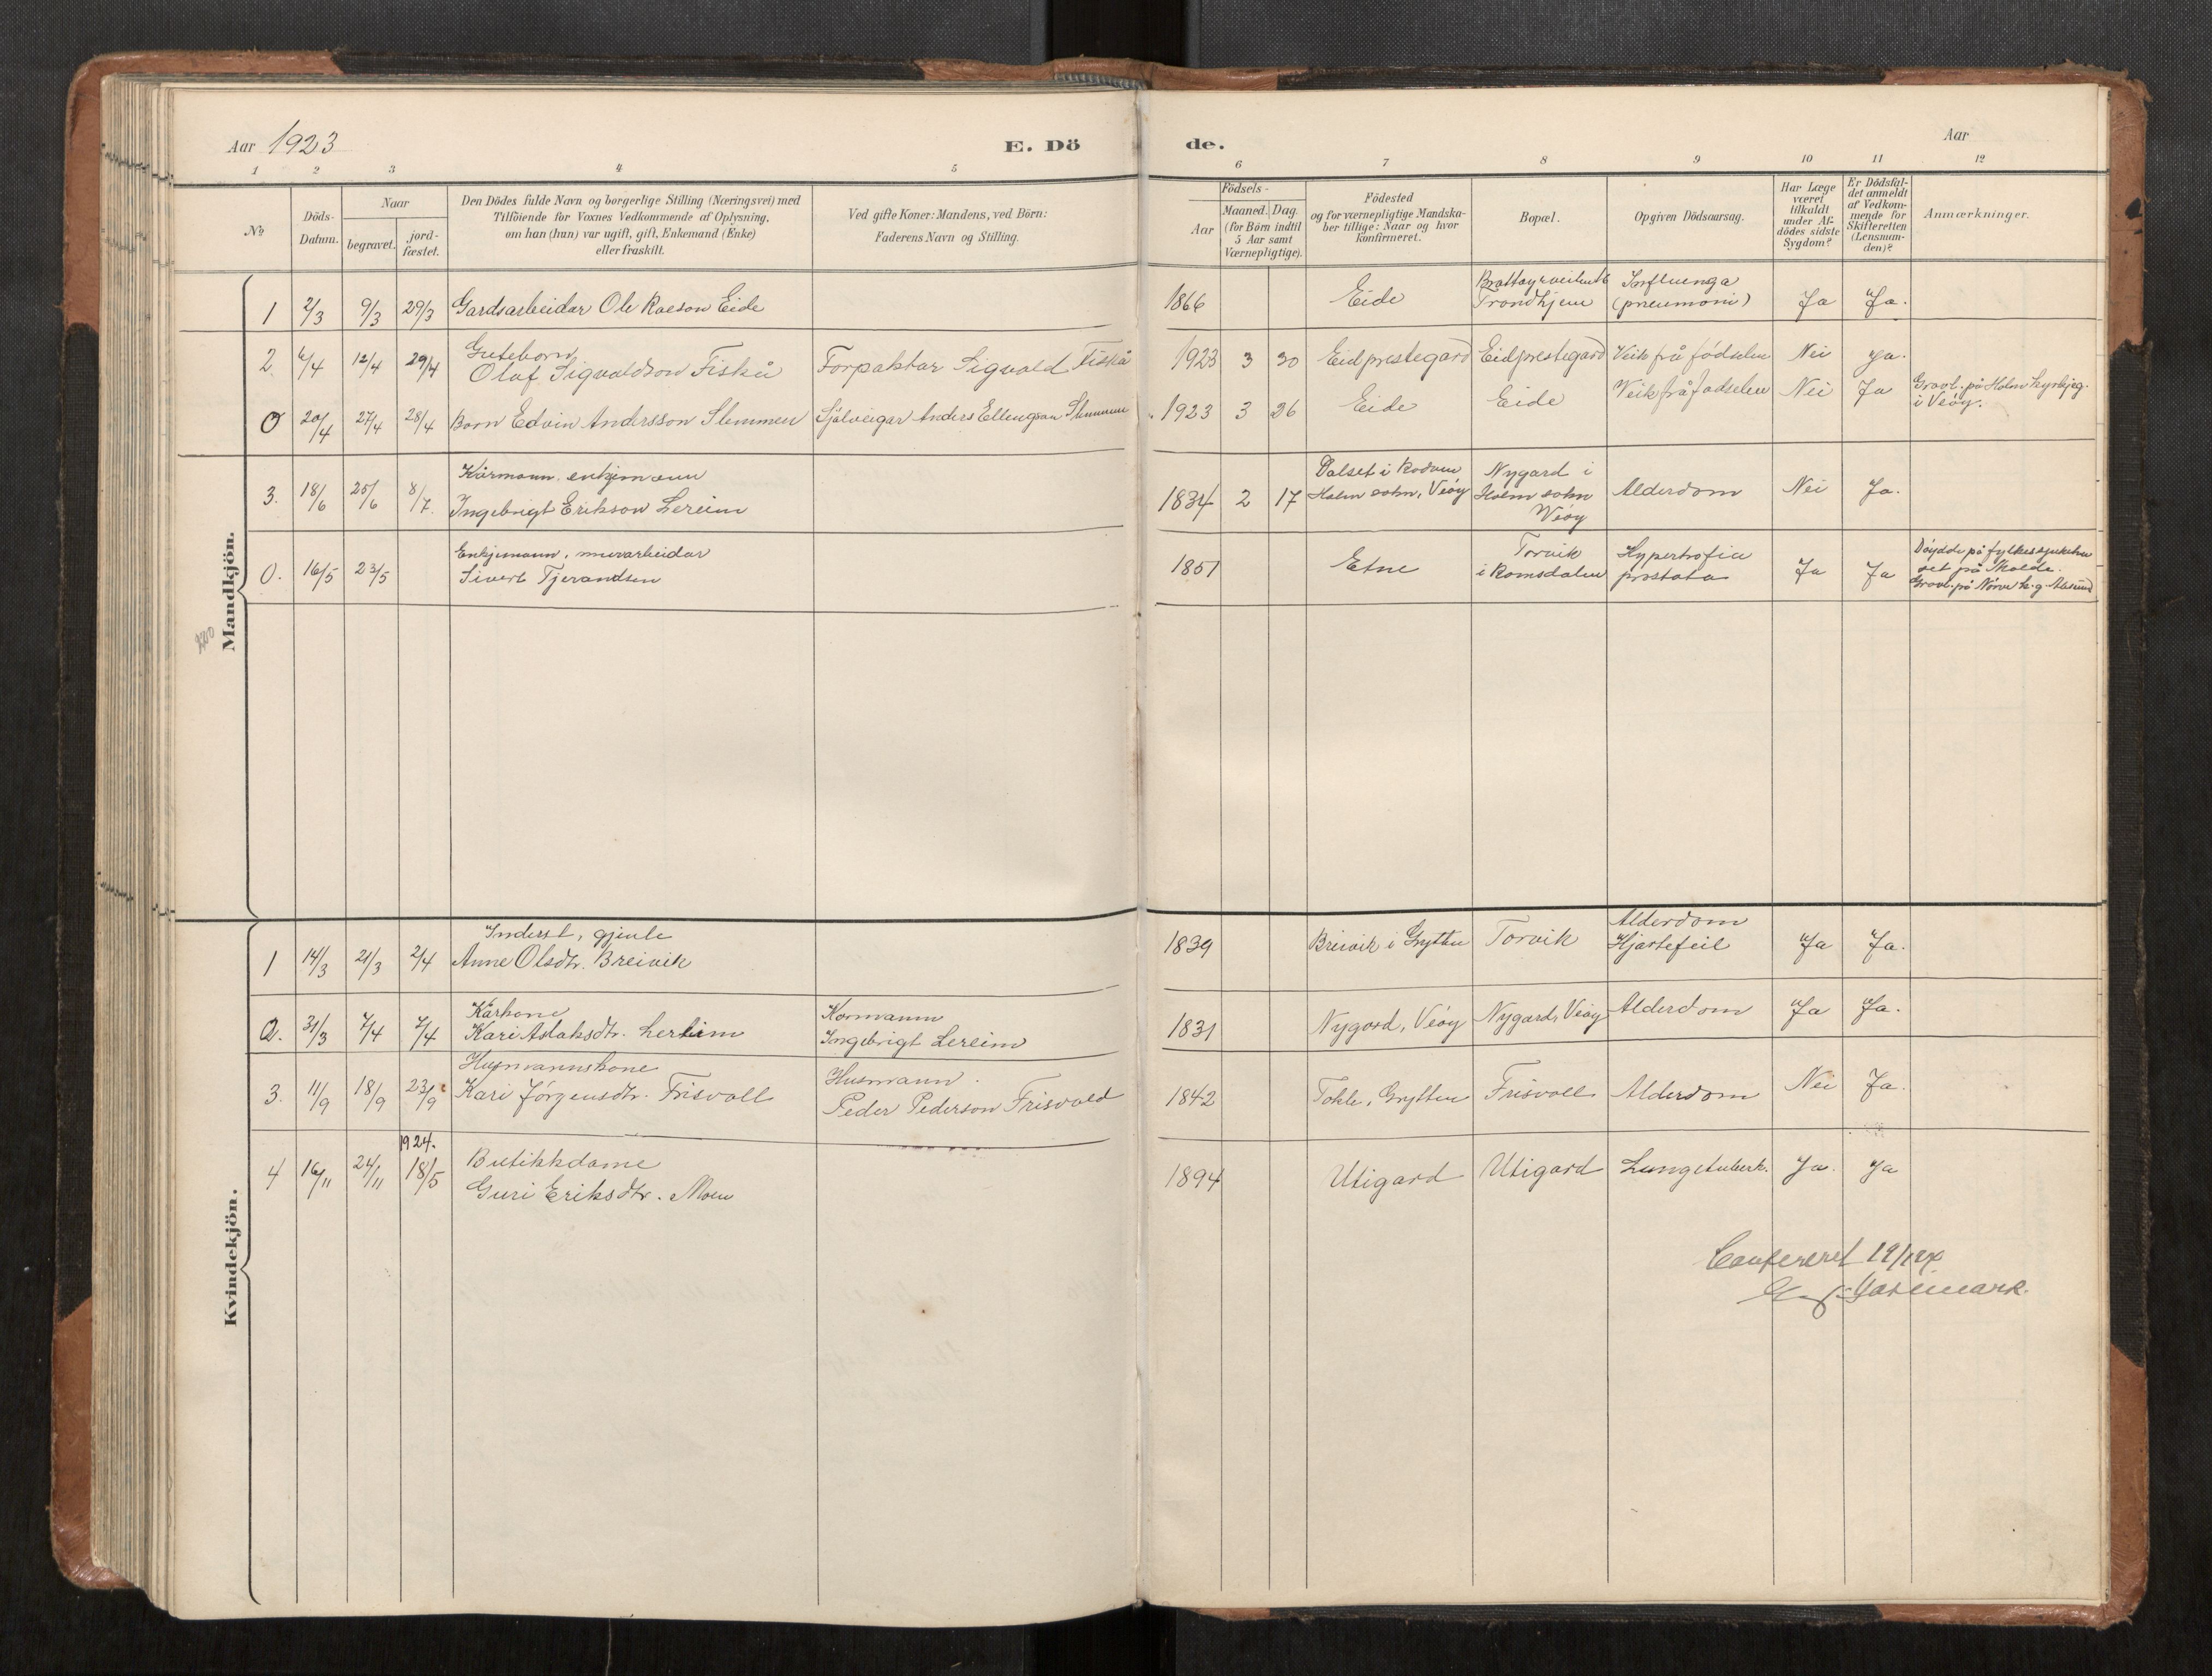 Aar 1923
E. Dö
de.
Aar
1 2 3 4 5 6 7 8 9 10 11 12
No
Döds-
Datum.
Naar
begravet.
jord-
fæstet.
Den Dödes fulde Navn og borgerlige Stilling (Næringsvei) med
Tilföiende for Voxnes Vedkommende af Oplysning,
om han (hun) var ugift, gift, Enkemand (Enke)
eller fraskilt.
Ved gifte Koner: Mandens, ved Börn:
Faderens Navn og Stilling.
Födsels-
Aar
Maaned. Dag.
(for Börn indtil
5 Aar samt
Værnepligtige).
Födested
og for værnepligtige Mandska-
ber tillige: Naar og hvor
konfirmeret.
Bopæl.
Opgiven Dödsaarsag.
Har Læge
været
tilkaldt
under Af-
dödes sidste
Sygdom?
Er Dödsfal-
det anmeldt
af Vedkom-
mende for
Skifteretten
(Lensman-
den)?
Anmærkninger.
Mandkjön.
1 2/3 9/3 29/3 Gardsarbeidar Ole Eide
1866 Eide
Trondhjem
Influenza
(pneumoni)
Ja Ja.
2 6/4 12/4 29/4 Guteborn
Olaf Sigvaldson Fiskå
Forpaktar Sigvald Fiskå
1923 3 30 Eidprestegard Eidprestegard Veik frå födselen Nei Ja.
0 20/4 27/4 28/4 Born Edvin Andersson Slemmen Sjölveigar Anders Ellengsen Slemmen
1923 3 26 Eide Eide Veik frå fødselen Nei Ja
Gravl. på Holm kyrkjeg.
i Veöy.
3. 18/6 25/6 8/7. Kårmann, enkjemann
Ingebrigt Erikson Lereim
1834 2 17
Dalset i
Holm sokn, Veöy
Nygard i
Holm sokn
Veöy
Alderdom Nei Ja.
0. 16/5 23/5 Enkjemann, murarbeidar
Sivert Tjerandsen
1851 Etne
Torvik
i Romsdalen
Hypertrofia
prostata
Ja Ja
Döydde på fylkessjukehu
set på Molde.
Gravl. på Nörve k.g. Aalesund
Kvindekjön.
1 14/3 21/3 2/4 Inderst, gjente
Anne Olsdtr. Breivik
1839 Breivik i Grytten Torvik
Alderdom
Hjartefeil
Ja Ja.
2. 31/3 7/4 7/4 Kårkone
Kari Aslaksdtr. Lereim
Kårmann
Ingebrigt Lereim
1831 Nygard, Veöy Nygard, Veöy Alderdom Ja Ja.
3. 11/9 18/9 23/9 Husmannskone
Kari Jörgensdtr. Frisvoll
Husmann.
Peder Pederson Frisvold
1842 Tokle, Grytten Frisvoll Alderdom Nei Ja.
1924.
4 16/11 24/11 18/5 Butikkdame
Guri Eriksdtr. Moen
1894 Utigard Utigard Lungetuberk. Ja. Ja
Confereret